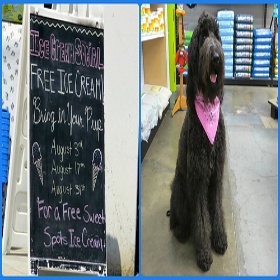 Ice Cream Social
FREE ICE CREAM!
Bring in Your Pup
August 3rd
August 17th
August 31st
For a Free Sweet
Spots Ice Cream!